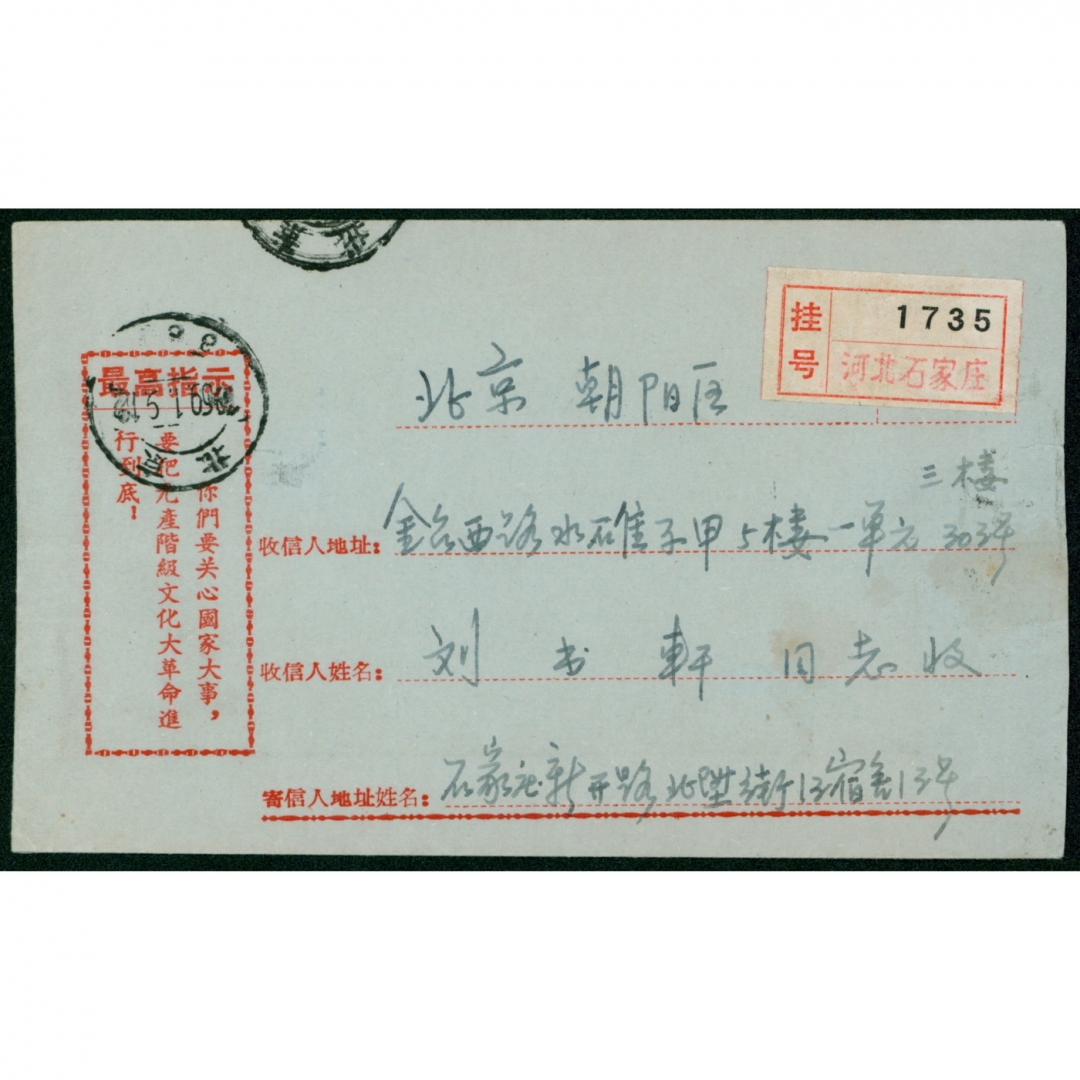 北京
挂号
1735
河北石家庄
北京
1969.1.5.12
最高指示
你們要关心國家大事,
要把无產階級文化大革命進
行到底!
北京 朝阳区
三楼
收信人地址: 金台西路水碓子甲5楼一单元303号
收信人姓名: 刘书轩同志收
寄信人地址姓名: 石家庄新开路北 街13宿舍13号